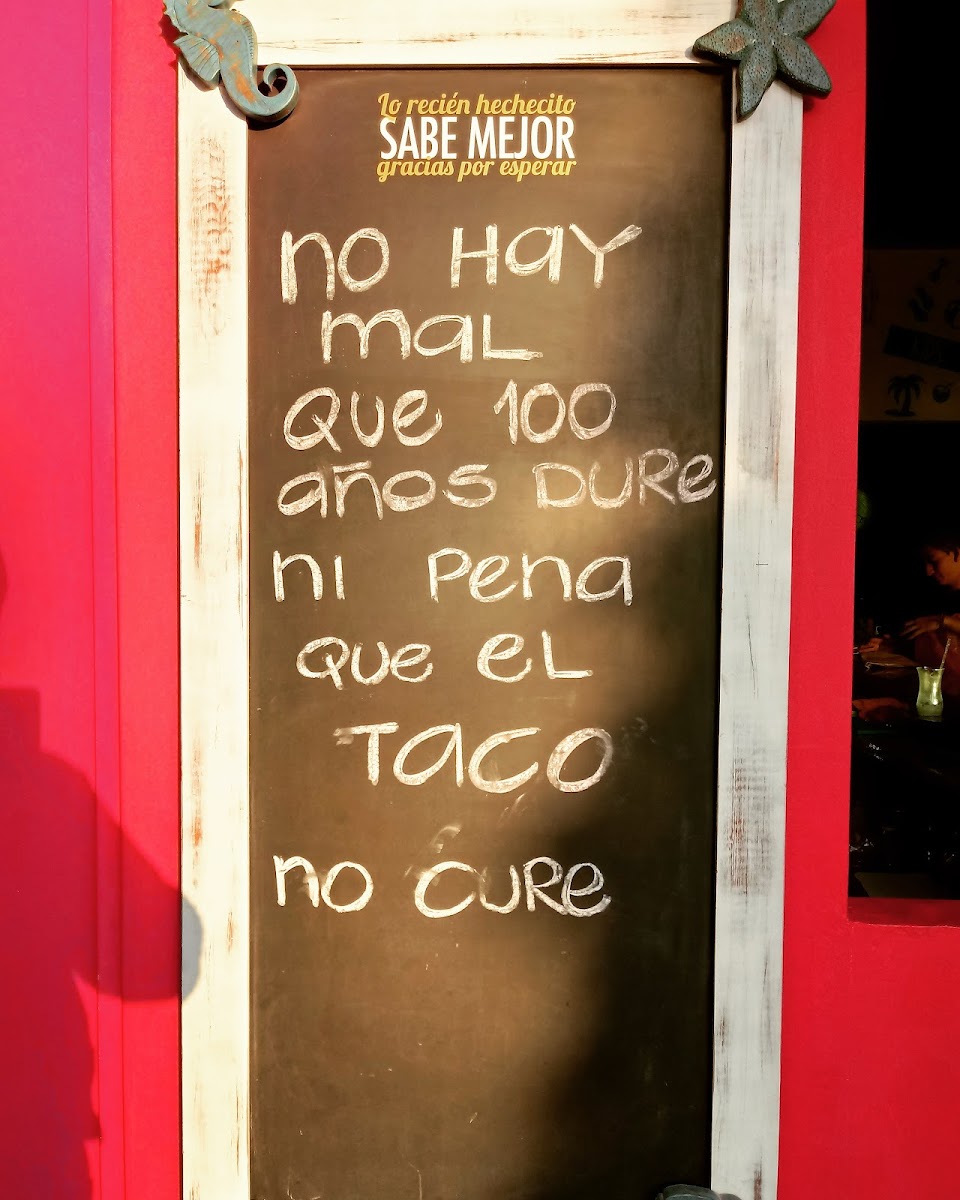 Lo recién hechecito
SABE MEJOR
gracias por esperar
no Hay
mal
que 100
años DURe
ni Pena
que el
Taco
no cure